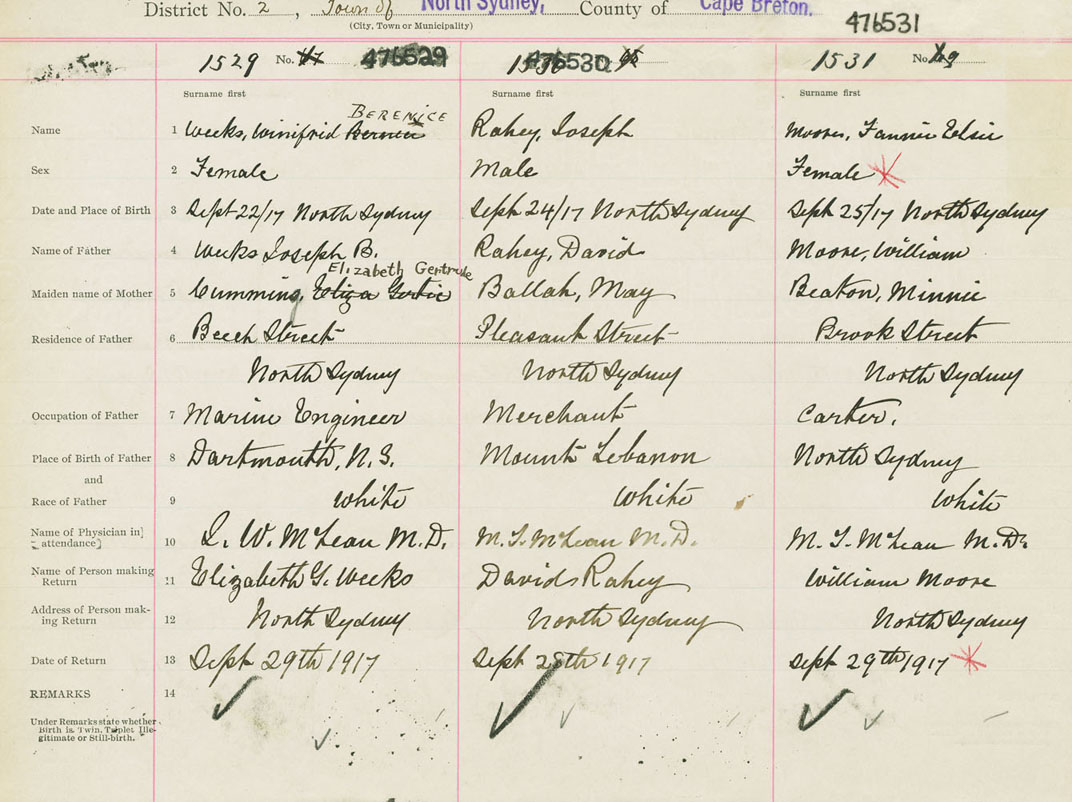 District No. 2, Town of North Sydney, County of Cape Breton.
(City, Town or Municipality)
476531
1529 No. 47 476529 1530 476530 1531 No.
Surname first Surname first Surname first
BERENICE
Name 1 Weeks, Winifrid Bernice Rahey, Joseph Moore, Fannie Elsie
Sex 2 Female Male Female
Date and Place of Birth 3 Sept 22/17 North Sydney Sept 24/17 North Sydney Sept 25/17 North Sydney
Name of Father 4 Weeks Joseph B. Rahey, David Moore, William
Elizabeth Gertrude
Maiden name of Mother 5 Cumming, Eliza Gertie Ballah, May Beaton, Minnie
Residence of Father 6 Beech Street Pleasant Street Brook Street
North Sydney North Sydney North Sydney
Occupation of Father 7 Marine Engineer Merchant Carter.
Place of Birth of Father 8 Dartmouth, N.S. Mount Lebanon North Sydney
and
Race of Father 9 White White White
Name of Physician in
attendance 10 L. W. McLean M.D. M.T. McLean M.D. M. T. McLean M.D.
Name of Person making
Return 11 Elizabeth G. Weeks David S Rahey William Moore
Address of Person mak-
ing Return 12 North Sydney North Sydney North Sydney
Date of Return 13 Sept 29th 1917 Sept 28th 1917 Sept 29th 1917
REMARKS 14
Under Remarks state whether
Birth is Twin, Triplet, Ille-
gitimate or Still-birth.